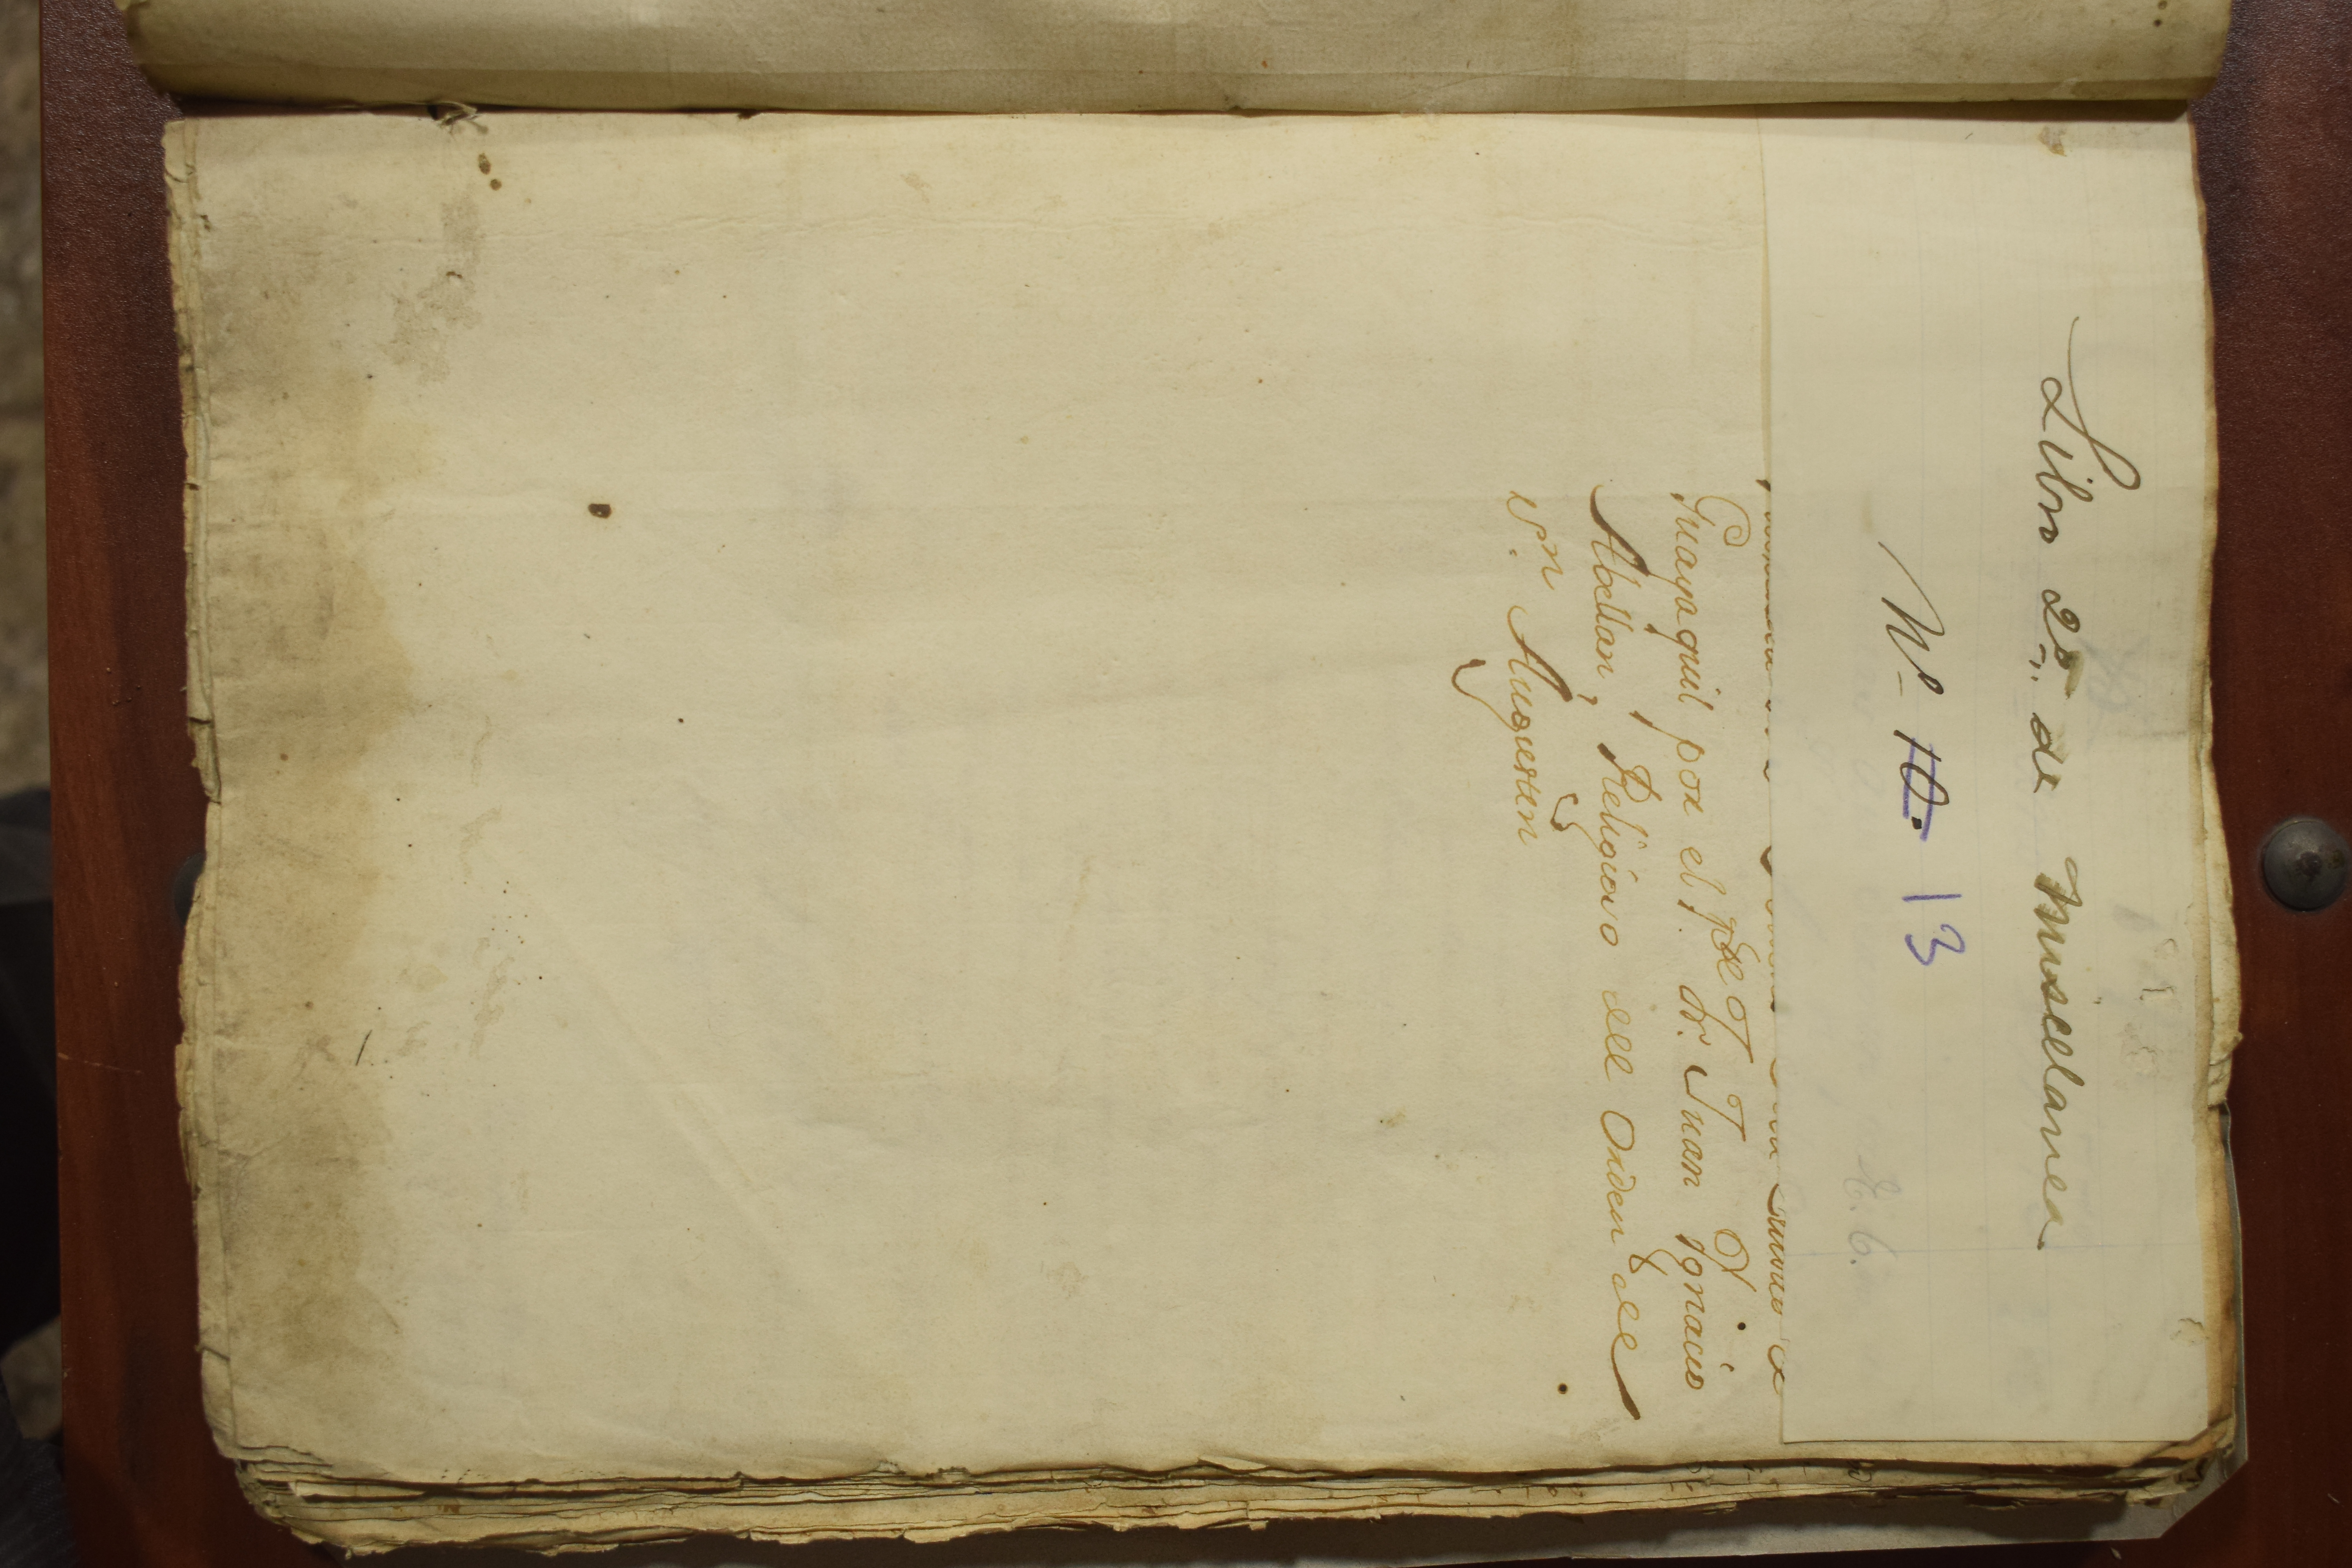 Libro 2º. de Miscelanea
Nº 10. 13
Guayaquil por el P. dr. Juan Ignacio
Abellan, Religioso del Orden de
Sn. Agustin